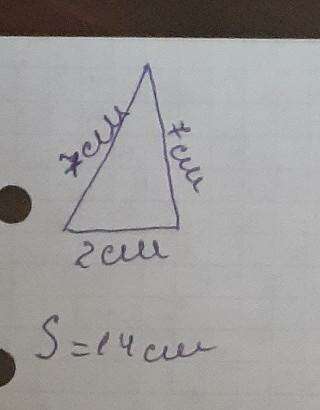 7см
7см
2см
S=14см